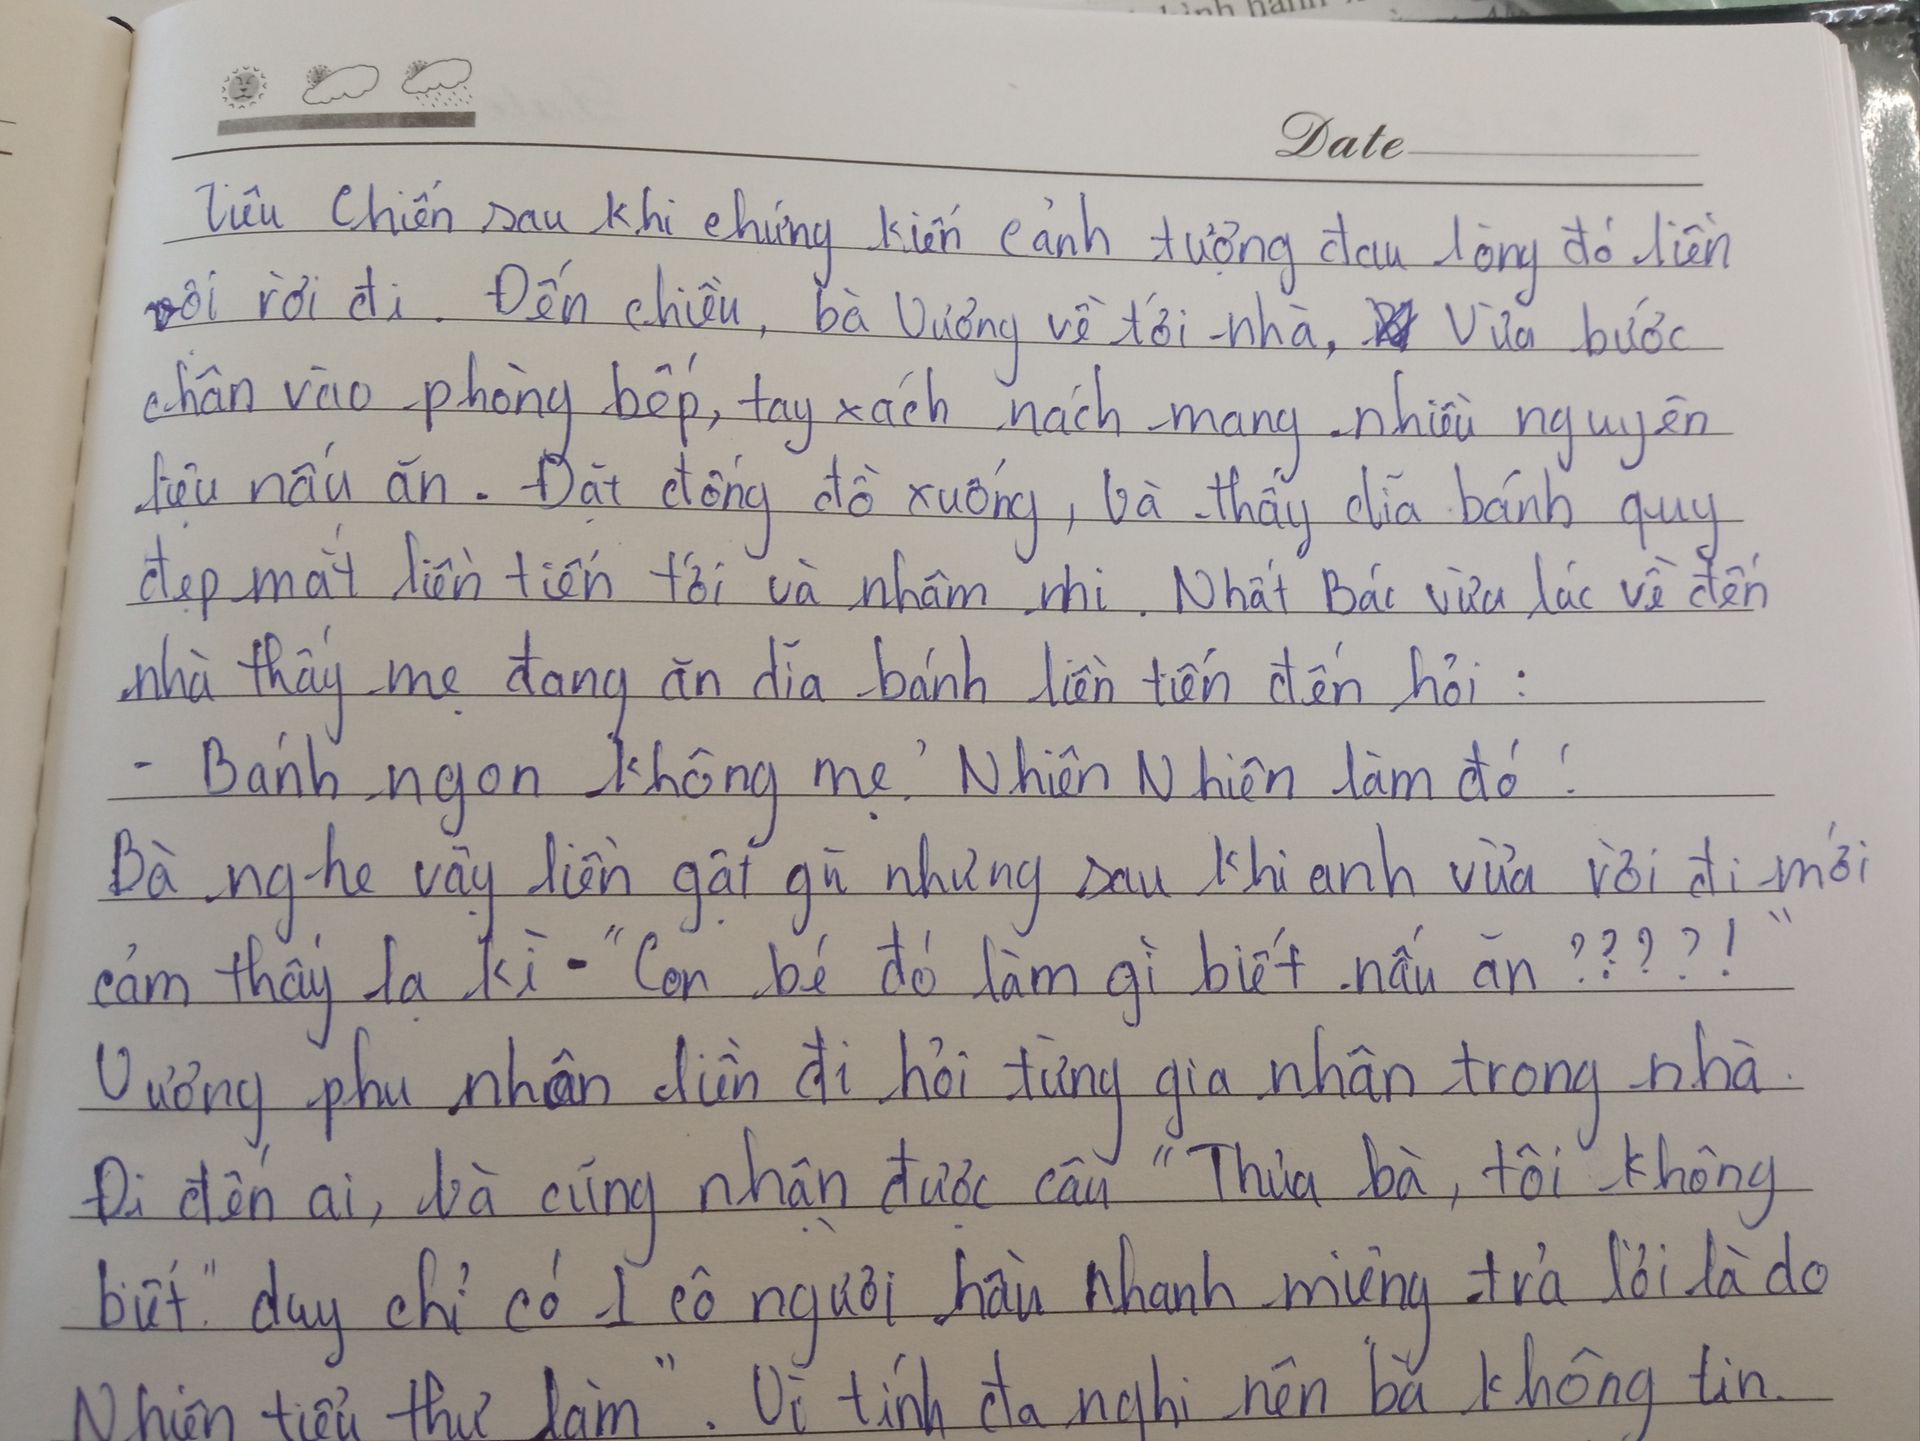 Date
Tiêu Chiến sau khi chứng kiến cảnh tượng đau lòng đó liền
rời đi. Đến chiều, bà Vương về tới nhà, Vừa bước
chân vào phòng bếp, tay xách nách mang nhiều nguyên
liệu nấu ăn. Đặt đống đồ xuống, bà thấy dĩa bánh quy
đẹp mắt liền tiến tới và nhâm nhi. Nhất Bác vừa lúc về đến
nhà thấy mẹ đang ăn dĩa bánh liền tiến đến hỏi :
- Bánh ngon không mẹ? Nhiên Nhiên làm đó !
Bà nghe vậy liền gật gù nhưng sau khi anh vừa rời đi mới
cảm thấy lạ kì - "Con bé đó làm gì biết nấu ăn ?????!"
Vương phu nhân liền đi hỏi từng gia nhân trong nhà.
Đi đến ai, bà cũng nhận được câu "Thưa bà, tôi không
biết." duy chỉ có 1 cô người hầu nhanh miệng trả lời là do
Nhiên tiểu thư làm". Vì tính đa nghi nên bà không tin.